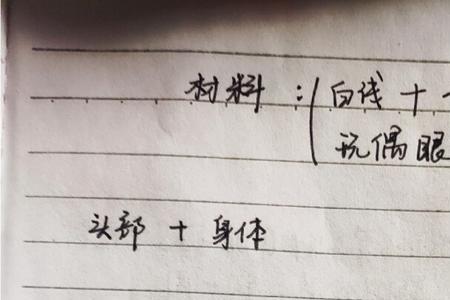 材料：白线+
玩偶眼
头部+身体